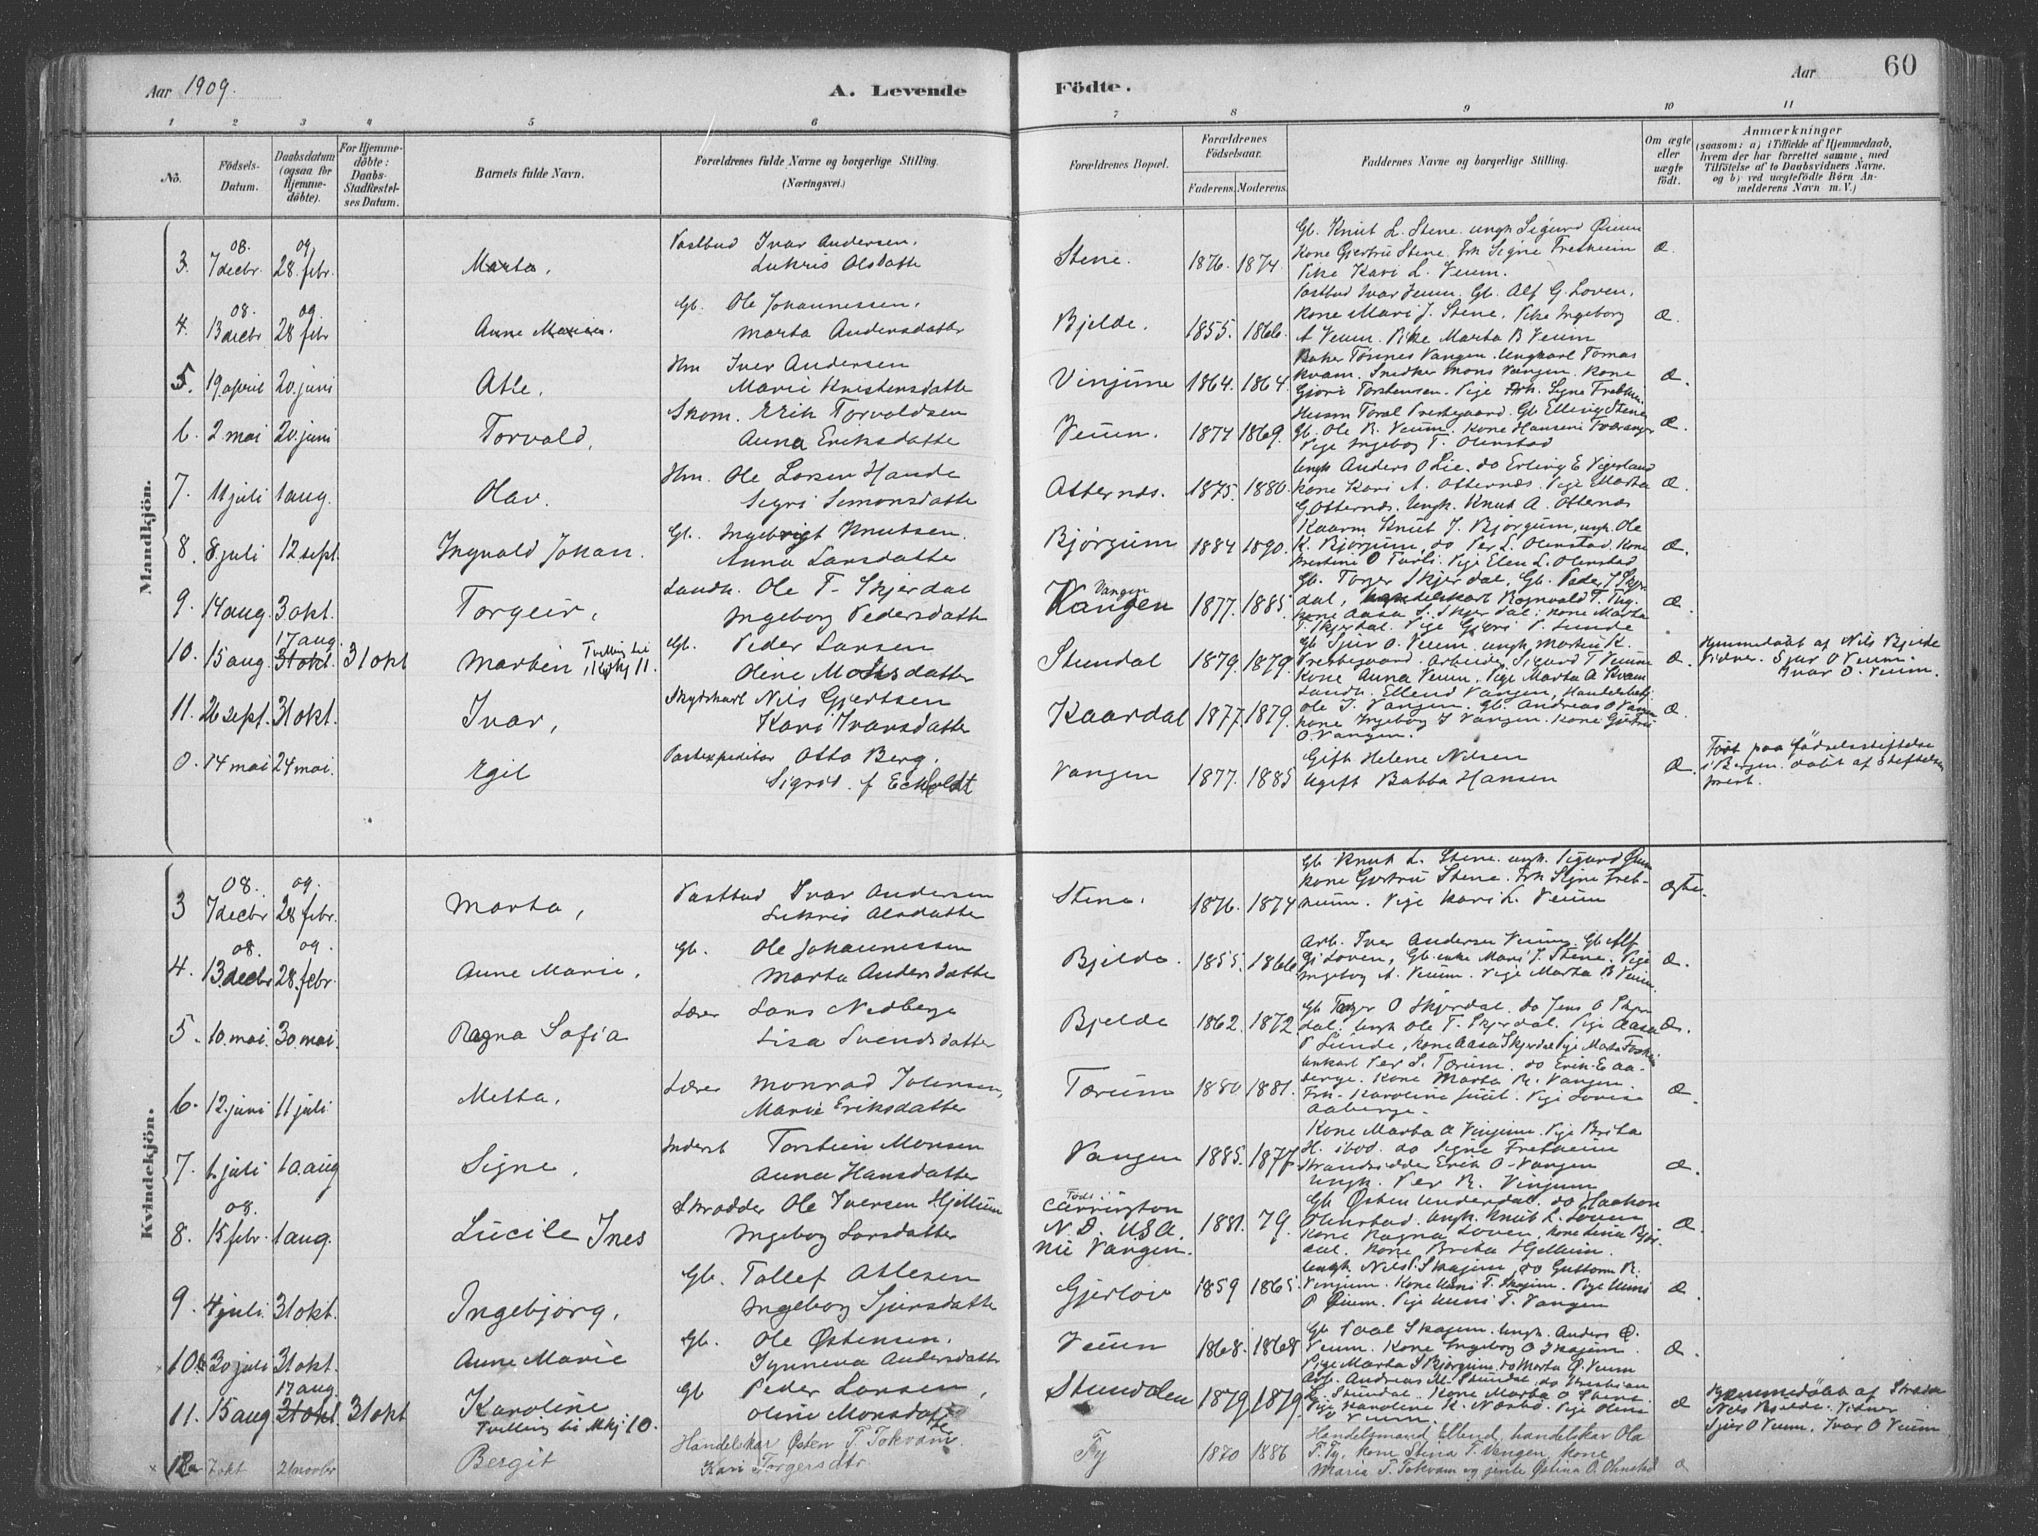 Aar 1909.
A. Levende
Födte.
Aar
60
1 2 3 4 5 6 7 8 9 10 11
No.
Födsels-
Datum.
Daabsdatum
(ogsaa for
Hjemme-
döbte).
For Hjemme-
döbte:
Daabs-
Stadfæstel-
ses Datum.
Barnets fulde Navn.
Forældrenes fulde Navne og borgerlige Stilling.
(Næringsvei.)
Forældrenes Bopæl.
Forældrenes
Födselsaar.
Faderens. Moderens.
Faddernes Navne og borgerlige Stilling.
Om ægte
eller
uægte
födt.
Anmærkninger
(saasom: a) i Tilfælde af Hjemmedaab,
hvem der har forrettet samme, med
Tilföielse af to Daabsvidners Navne.
og b) ved uægtefödte Börn An-
melderens Navn m. V.)
Mandkjön.
08. 09.
3. 7 decbr. 28. febr. Marta, Pastbud Ivar Andersen. Stene. 1876. 1874. Gb. Knut L. Stene. ungk Sigurd Øium æ.
Lukris Olsdatte Kone Gjertru Stene. Frk Signe Fretheim
Pike Kari L. Veum.
08. 09
4. 13 decbr 28 febr Anne Marie. Gb. Ole Johannessen. Bjelde. 1855. 1866. Postbud Ivar Veum. Gb. Alf G. Loven. æ.
Marta Andersdatte Kone Mari J. Stene. Pike Ingeborg
A Veum. Pike Marta B Veum
5. 19 april 20. juni Atle. Hm Iver Andersen Vinjume 1864. 1864. Baker Tønnes Vangen. Ungkarl Tomas æ.
Marie Kristensdatte Kvam. Snedker Mons Vangen. Kone
Gjøri Torstensen. Pige Frk. Signe Frethm.
6. 2 mai 20. juni Torvald, Skom. Erik Torvaldsen Veum. 1874 1869. æ.
Anna Eriksdatte Gb. Ole B. Veum. Kone Hanseni Tværanger
Pige Ingebog T. Olnstad
7. 11 juli 1 aug. Olav. Hm. Ole Larsen Haude Otternes. 1875. 1880. Ungk Anders O Lie. do Erling E Vigerland æ.
Sigri Simonsdatte Kone Kari A. Otternæs. Pige Marta
G Otternæs. Ungk. Knut A. Otternæs
8. 8 juli 12 sept. Ingvald Johan. Gb. Ingebrigt Knutsen. Bjørgum 1884 1890. Kaarm Knut J. Bjørgum, ungk. Ole æ.
Anna Larsdatte K. Bjørgum, do Per L. Olnstad. Kone
Kristine O Turli. Pige Elen L. Olnstad
9. 14 aug. 3 okt. Torgeir, Landh. Ole T. Skjerdal Vangen 1877. 1885. Gb. Torger Skjerdal, Gb. Peder J Skjer- æ.
Ingeborg Pedersdatte dal, Rognvald T.
Kone Aasa S. Skjerdal. Kone Marta
T. Skjerdal. Pige Gjøri P. Lunde
17 aug.
10. 15 aug. 31 okt. 31 okt Martin Tvilling til Kvkj 11. Gb. Peder Larsen Stundal 1879. 1879. Gb Sjur O. Veum. ungk. Martin K. æ. Hjemmedøbt af Nils Bjelde
Oline Monsdatter Prestegaard. Arbeider Sigurd T Veum Vidner. Sjur O Veum.
Kone Anna Veum. Pige Marta A Kvam Ivar O. Veum.
11. 26 sept. 31 okt. Ivar, Skydskarl Nils Gjertsen Kaardal 1877. 1879. Landh. Ellend Vangen, Handelsbetj. æ.
Kari Ivarsdatte Ole J. Vangen. Gb. Andreas O Vangen
Kone Ingebor J Vangen. Kone Gjertru
O. Vangen.
0. 14 mai 24 mai. Egil Postexpeditør Otto Berg. Vangen 1877. 1885 Gift Helene Nilsen æ. Født paa Fødselsstiftelse
Sigrid f Eckholdt Ugift Babba Hansen i Bergen. døbt af stiftelsens
prest.
Kvindekjön.
08. 09.
3 7 decbr 28 febr. Marta, Postbud Ivar Andersen Stene. 1876. 1874 Gb Knut L. Stene. ungk. Sigurd Øium ægte.
Lukris Olsdatte Kone Gjertru Stene. Frk Signe Fret-
heim. Pige Kari L. Veum
08. 09.
4. 13 decbr 28. febr. Anne Marie. Gb. Ole Johannessen Bjelde. 1855. 1866. Arb. Iver Andersen Veum. Gb Alf æ.
Marta Andersdatte G. Loven, Gb. enke Mari J. Stene. Pige
Ingebog A. Veum. Pige Marta B Veum.
5. 10. mai. 30. mai. Ragna Sofia Lærer Lars Nedberge Bjelde 1862. 1872. Gb Torger O Skjerdal. do Jens O Skjer- æ.
Lisa Svendsdatter dal. Ungk Ole T. Skjerdal. Pige Aasa
P Lunde, Kone Aasa Skjerdal Pige Marta
6. 12. juni 11 juli Metta. Lærer Monrad Johnsen, Tærum 1880 1881. Unkarl Per S. Tærum. do Erik E Aa- æ.
Marie Eriksdatter berge. Kone Marta R. Vangen.
Frk. Karoline Juul. Pige Lovise
Aaberge.
7. 6 juli 10. aug Signe. Inderst Torstein Monsen Vangen 1885. 1877. Kone Marta O Vinjum. Pige Brita æ.
Anna Hansdatter H. Ibod. do Signe Fretheim
Strandsidder Erik O Vangen
Ungk. Per R. Vinjum
08.
8. 15 febr. 1 aug. Lucile Ines Skrædder Ole Iversen Hjellum Født i Carrington 1881. 79. Gb. Østen Underdal. do Haakon æ.
Ingebog Larsdatter N.D. U.S.A. Olnstad. Ungk. Knut L. Loven
nu Vangen. Kone Ragna Loven. Kone Lina Bjø-
dal. Kone Brita Hjellum.
9. 4 juli. 31 okt. Ingebjørg. Gb. Tollef Atlesen Gjerløw 1859 1865. Ungk Nils Skagum, do Guttorm R. æ.
Ingebor Sjursdatte Vinjum. Kone Unni T. Skagum. Pige Unni
P Øium. Pige Unni T. Vangen
10. 30 juli 31 okt. Anne Marie Gb. Ole Østensen. Veum 1868. 1868 Gb Paal Skagum. Ungk. Anders O. æ.
Synneva Andersdatte Veum. Kone Ingebog O Skagum.
Pige Marta J Bjørgum. do Marta O. Veum
17 aug.
11. 15 aug 31 okt 31 okt Karoline Gb Peder Larsen, Stundalen 1879 1879. Arb. Andreas M. Stundal. do Kristian æ Hjemmedøbt af
Tvilling til Mkj 10. Oline Monsdatte L. Stundal. Kone Marta O Stene Nils Bjelde. Vidner
Pige Karoline K. Næsbø. Pige Oline Sjur O Veum, Ivar O Veum
O Veum.
12. 7 okt 21 novbr Bergit Handelskar Østen T. Tokvam. Ty 1870 1886 Handelsmand Ellend, handelskar Ola æ
Kari Torgersdtr T. Ty, kone Stina T. Vangen, kone
Maria T. Tokvam og jente Østina O. Olnstad